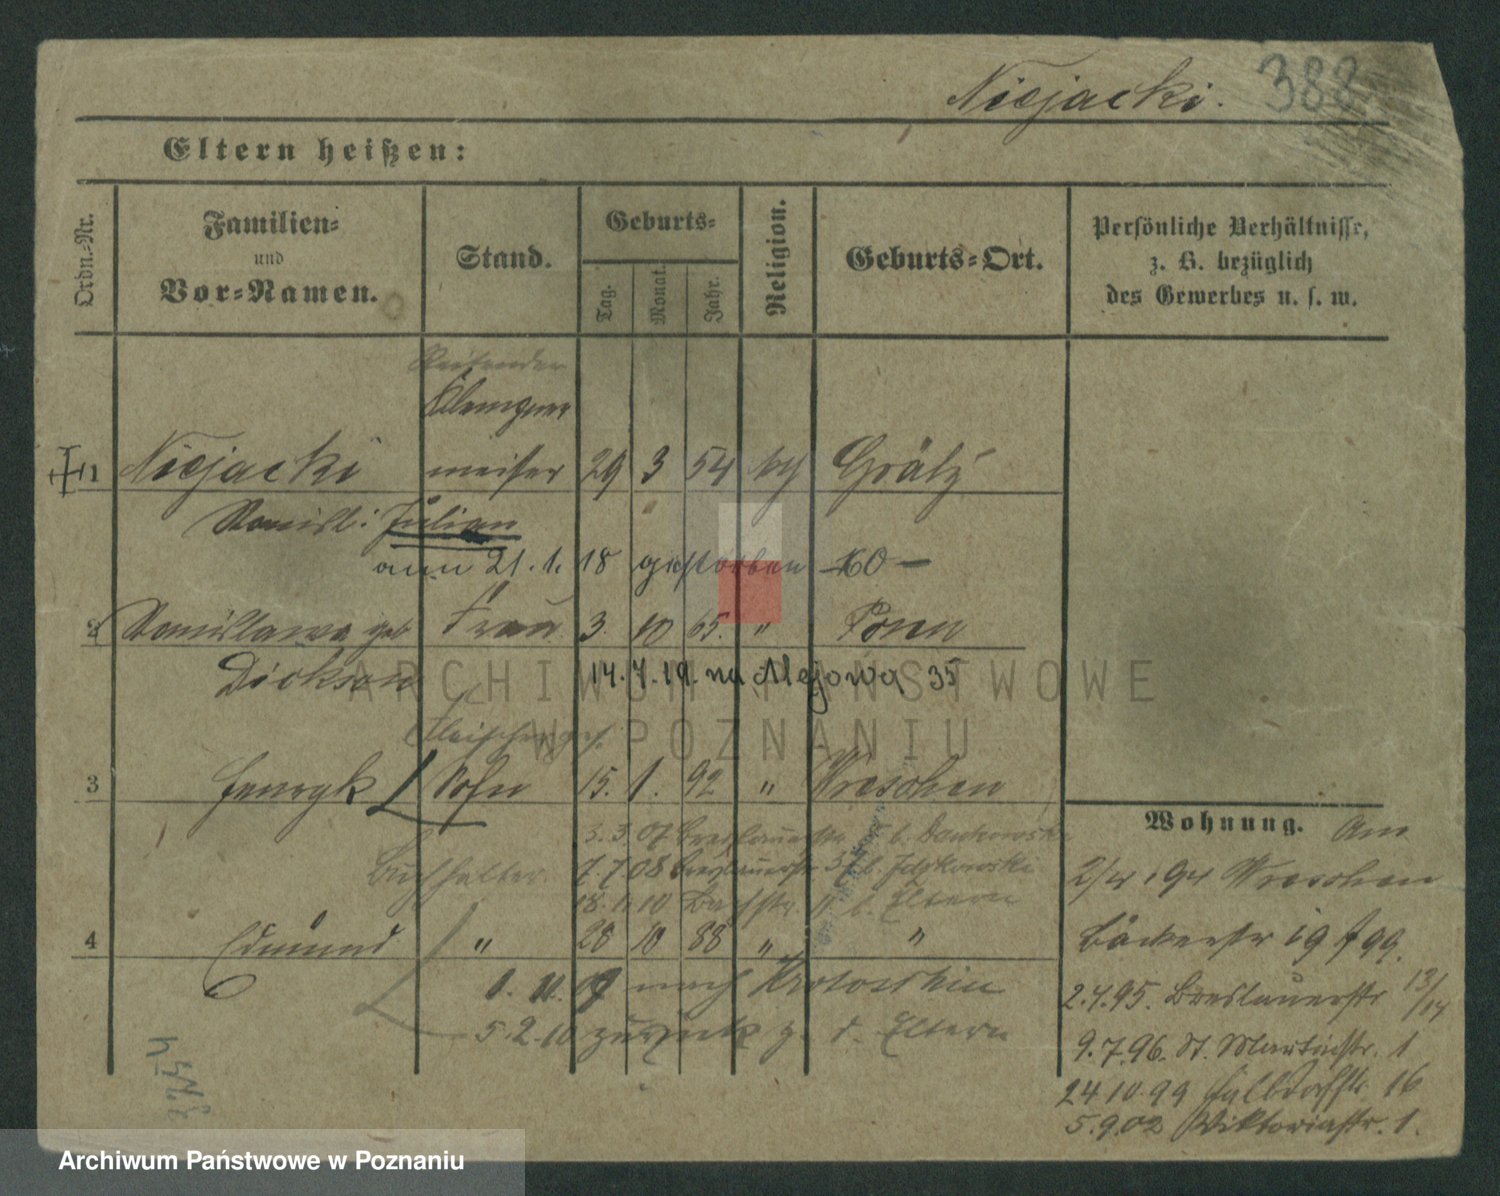 Niejacki. 388
Eltern heißen:
Ordn.-Nr.
Familien-
und
Vor-Namen.
Stand.
Geburts-
Tag.
Monat.
Jahr.
Religion.
Geburts-Ort.
Persönliche Verhältnisse,
z. B. bezüglich
des Gewerbes u. s. w.
Reisender
Klempner
1 Niejacki meister 29 3 54 Grätz
Julian
am 21.1.18 gestorben
2 Stanislawa geb Frau 3. 10 65. " Posen
14.7.19. na Alejowa 35
Fleischerges.
3 Henryk Sohn 15. 1. 92 " Wreschen
3.3.07 Breslauerstr. b. Dankowski
Buchhalter 7.7 08 Breslauerstr b.
18. 10 b. Eltern
4 Edmund " 28 10 88 " "
nach Krotoschin
5.2.10 zurück z. d. Eltern
Wohnung. Am
Wreschen
Bäckerstr 19
2.4.95. Breslauerstr 13/14
9.7.96. St. Martinstr. 1
24 10 99 Halbdorfstr. 16
5.9.02 Viktoriastr. 1.
ARCHIWUM PAŃSTWOWE
W POZNANIU
Archiwum Państwowe w Poznaniu